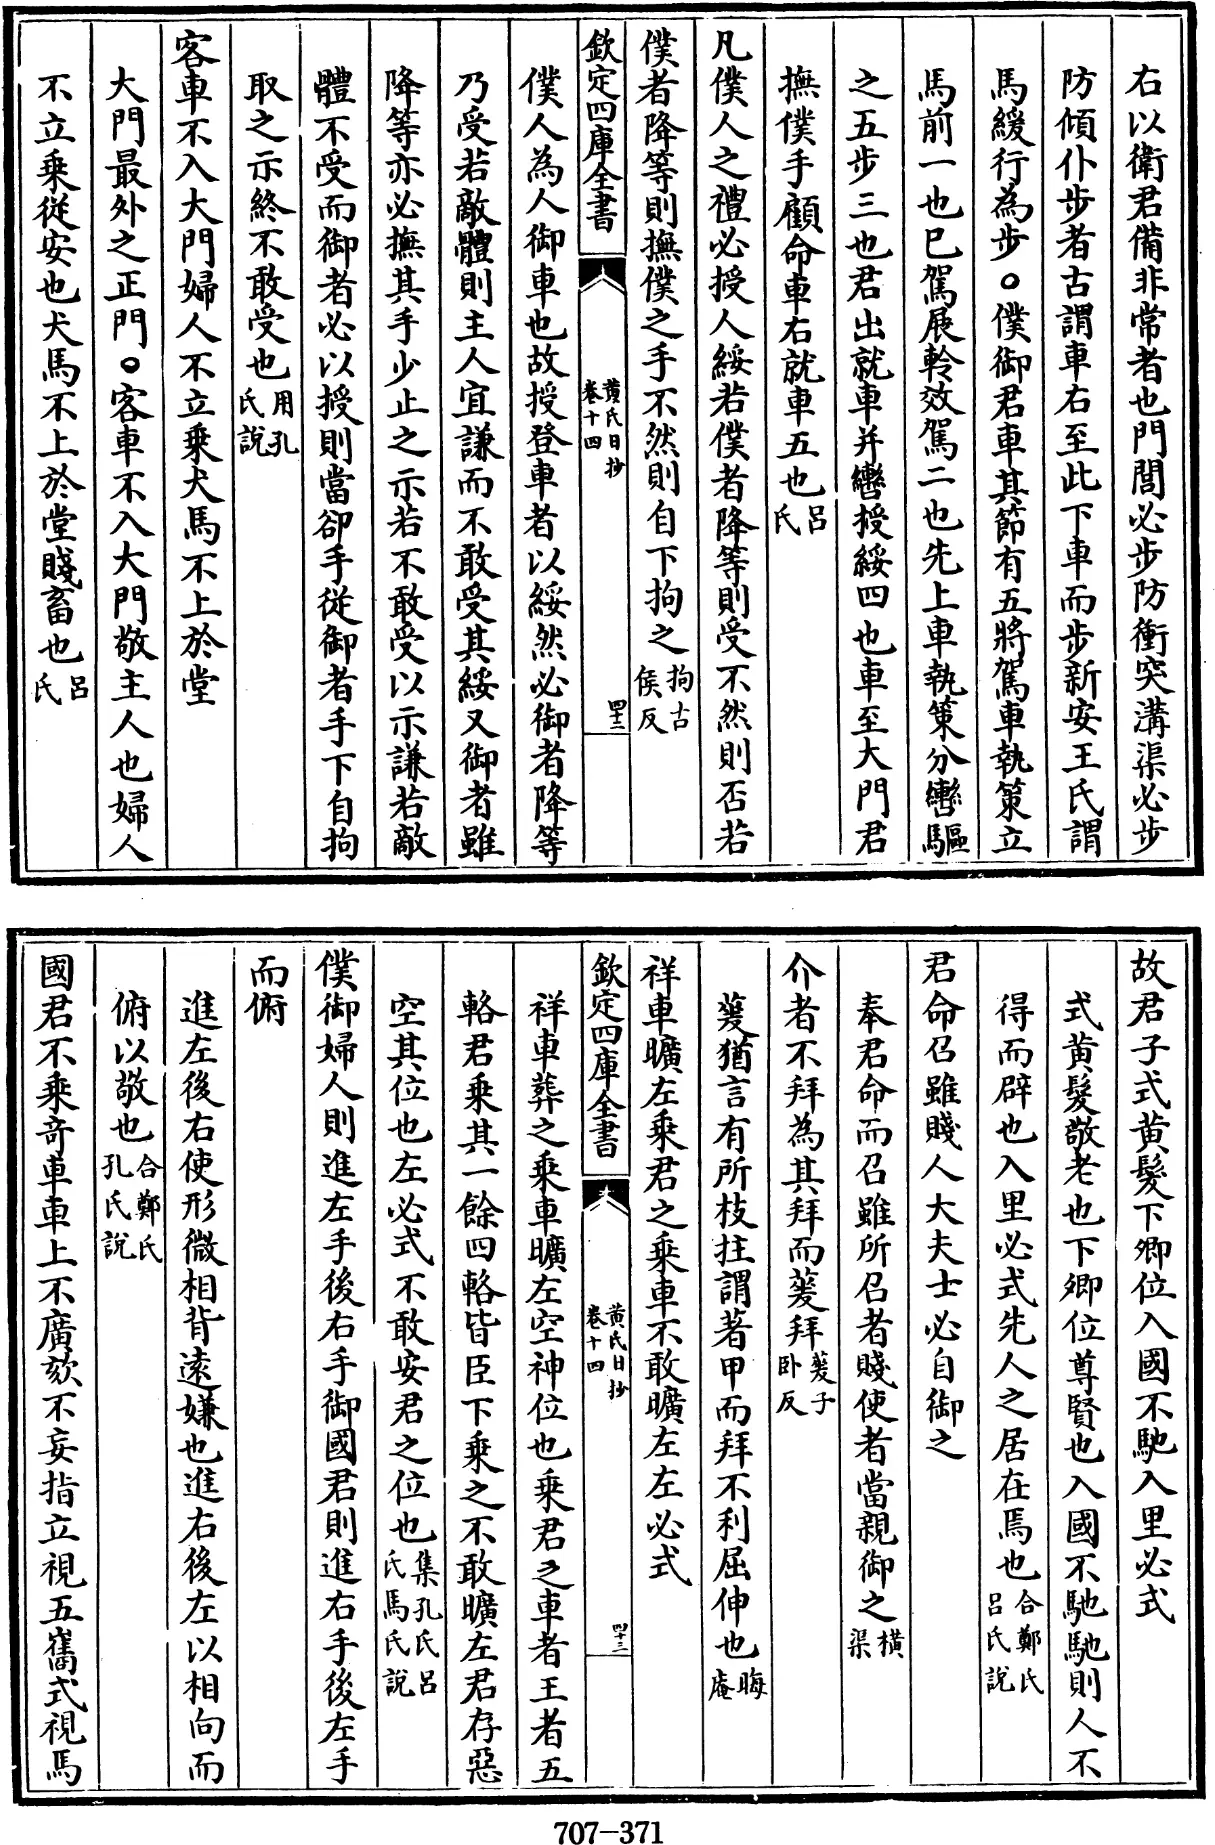 右以衛君備非常者也門閭必步防衝突溝渠必步
防傾仆步者古謂車右至此下車而步新安王氏謂
馬緩行為步○僕御君車其節有五將駕車執策立
馬前一也已駕展軨效駕二也先上車執策分轡驅
之五步三也君出就車并轡授綏四也車至大門君
撫僕手顧命車右就車五也呂氏
凡僕人之禮必授人綏若僕者降等則受不然則否若
僕者降等則撫僕之手不然則自下拘之拘古侯反
欽定四庫全書
黃氏日抄
卷十四
四十二
僕人為人御車也故授登車者以綏然必御者降等
乃受若敵體則主人宜謙而不敢受其綏又御者雖
降等亦必撫其手少止之示若不敢受以示謙若敵
體不受而御者必以授則當卻手從御者手下自拘
取之示終不敢受也用孔氏說
客車不入大門婦人不立乘犬馬不上於堂
大門最外之正門○客車不入大門敬主人也婦人
不立乘從安也犬馬不上於堂賤畜也呂氏
故君子式黃髮下卿位入國不馳入里必式
式黃髮敬老也下卿位尊賢也入國不馳馳則人不
得而辟也入里必式先人之居在焉也合鄭氏呂氏說
君命召雖賤人大夫士必自御之
奉君命而召雖所召者賤使者當親御之橫渠
介者不拜為其拜而蓌拜蓌子卧反
蓌猶言有所枝拄謂著甲而拜不利屈伸也晦庵
祥車曠左乘君之乘車不敢曠左左必式
欽定四庫全書
黃氏日抄
卷十四
四十三
祥車葬之乘車曠左空神位也乘君之車者王者五
輅君乘其一餘四輅皆臣下乘之不敢曠左君存惡
空其位也左必式不敢安君之位也集孔氏呂氏馬氏說
僕御婦人則進左手後右手御國君則進右手後左手
而俯
進左後右使形微相背遠嫌也進右後左以相向而
俯以敬也合鄭氏孔氏說
國君不乘奇車車上不廣欬不妄指立視五巂式視馬
707-371